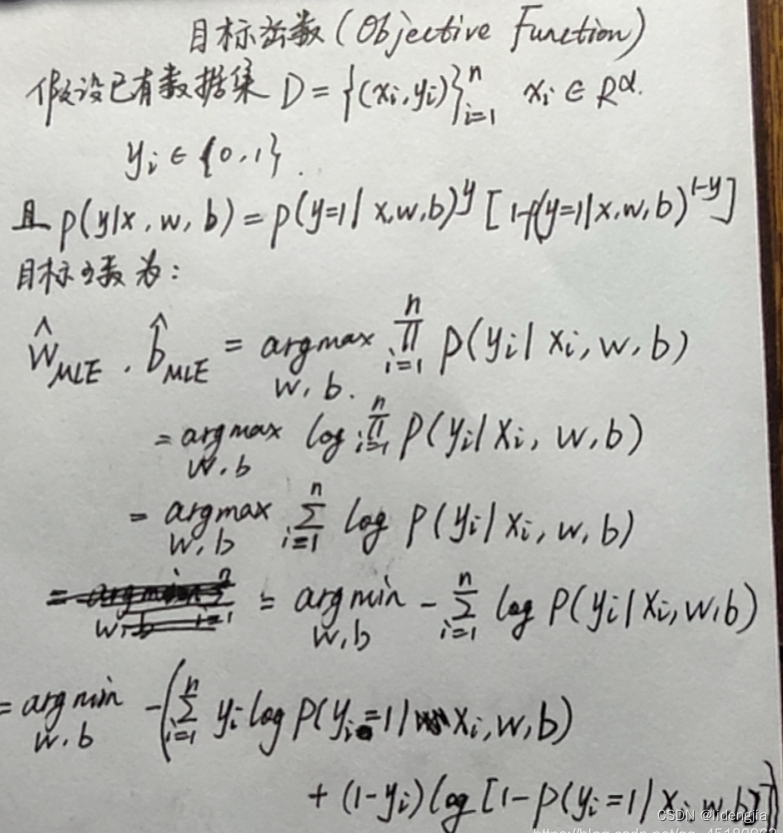 目标函数(Objective Function)
假设已有数据集 D = {(xi, yi)}ⁿᵢ₌₁ xi ∈ Rᵈ.
yi ∈ {0, 1}.
且 p(y|x, w, b) = p(y=1 | x, w, b)ʸ [1-p(y=1 | x, w, b)¹⁻ʸ]
目标函数为:
ŵ_MLE . b̂_MLE = argmax_{w, b.} ∏ⁿᵢ₌₁ p(yi | xi, w, b)
= argmax_{w, b} log ∏ⁿᵢ₌₁ p(yi | xi, w, b)
= argmax_{w, b} Σⁿᵢ₌₁ log p(yi | xi, w, b)
= argmin_{w, b} - Σⁿᵢ₌₁ log p(yi | xi, w, b)
= argmin_{w, b} - (Σⁿᵢ₌₁ yi log p(yi=1 | xi, w, b)
+ (1-yi) log [1-p(yi=1 | xi, w, b)])
CSDN @lidengjia